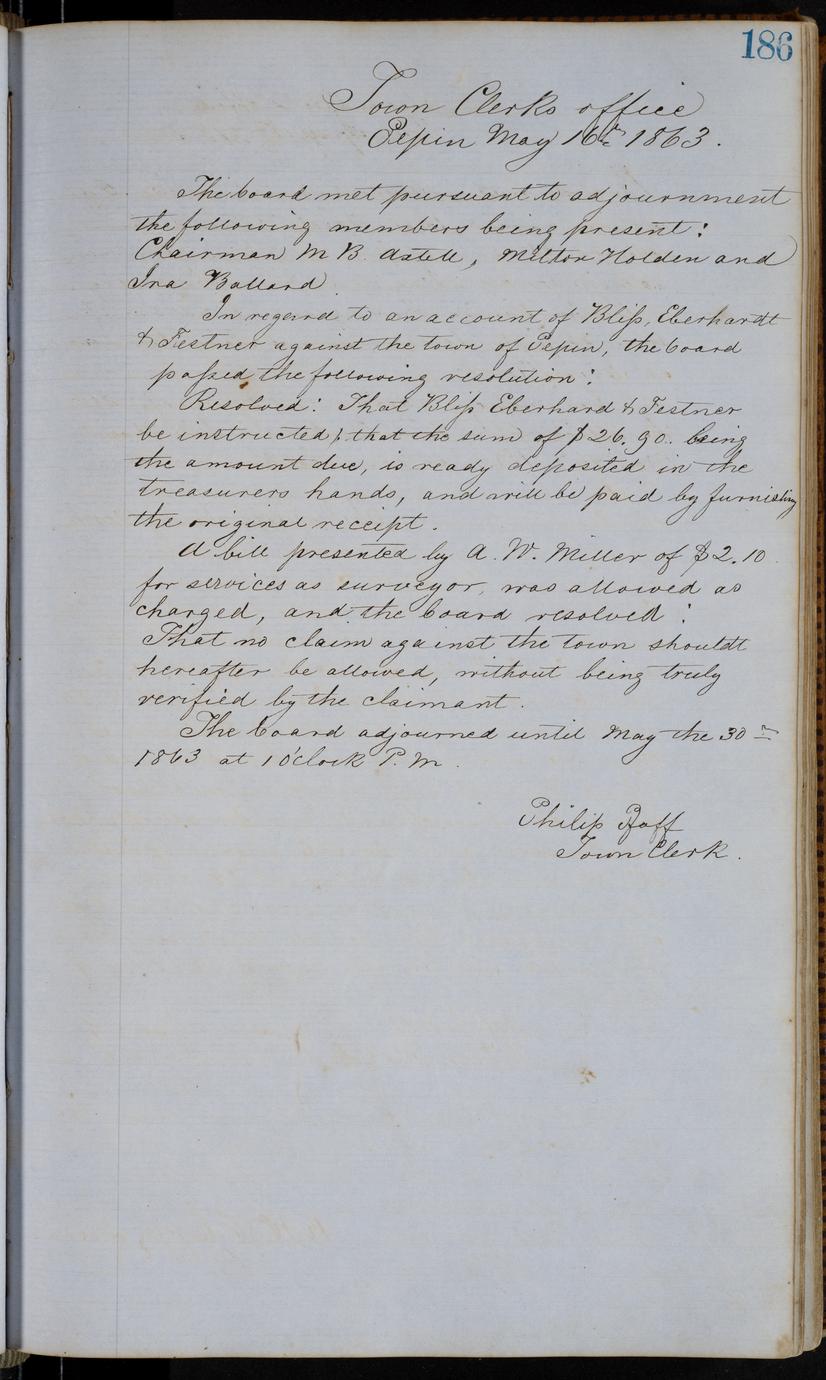 186
Town Clerks office
Pepin May 16th 1863.
The board met pursuant to adjournment
the following members being present:
Chairman M B. Axtell, Milton Holden and
Ira Ballard
In regard to an account of Bliſs, Eberhardt
& Festner against the town of Pepin, the board
paſsed the following resolution:
Resolved: That Bliſs Eberhard & Festner
be instructed, that the sum of $26.90. being
the amount due, is ready deposited in the
treasurers hands, and will be paid by furnishing
the original receipt.
A bill presented by A. W. Miller of $2.10
for services as surveyor, was allowed as
charged, and the board resolved:
That no claim against the town shouldt
hereafter be allowed, without being truly
verified by the claimant.
The board adjourned until May the 30th
1863 at 1 o'clock P. M.
Philip Pfaff
Town Clerk.